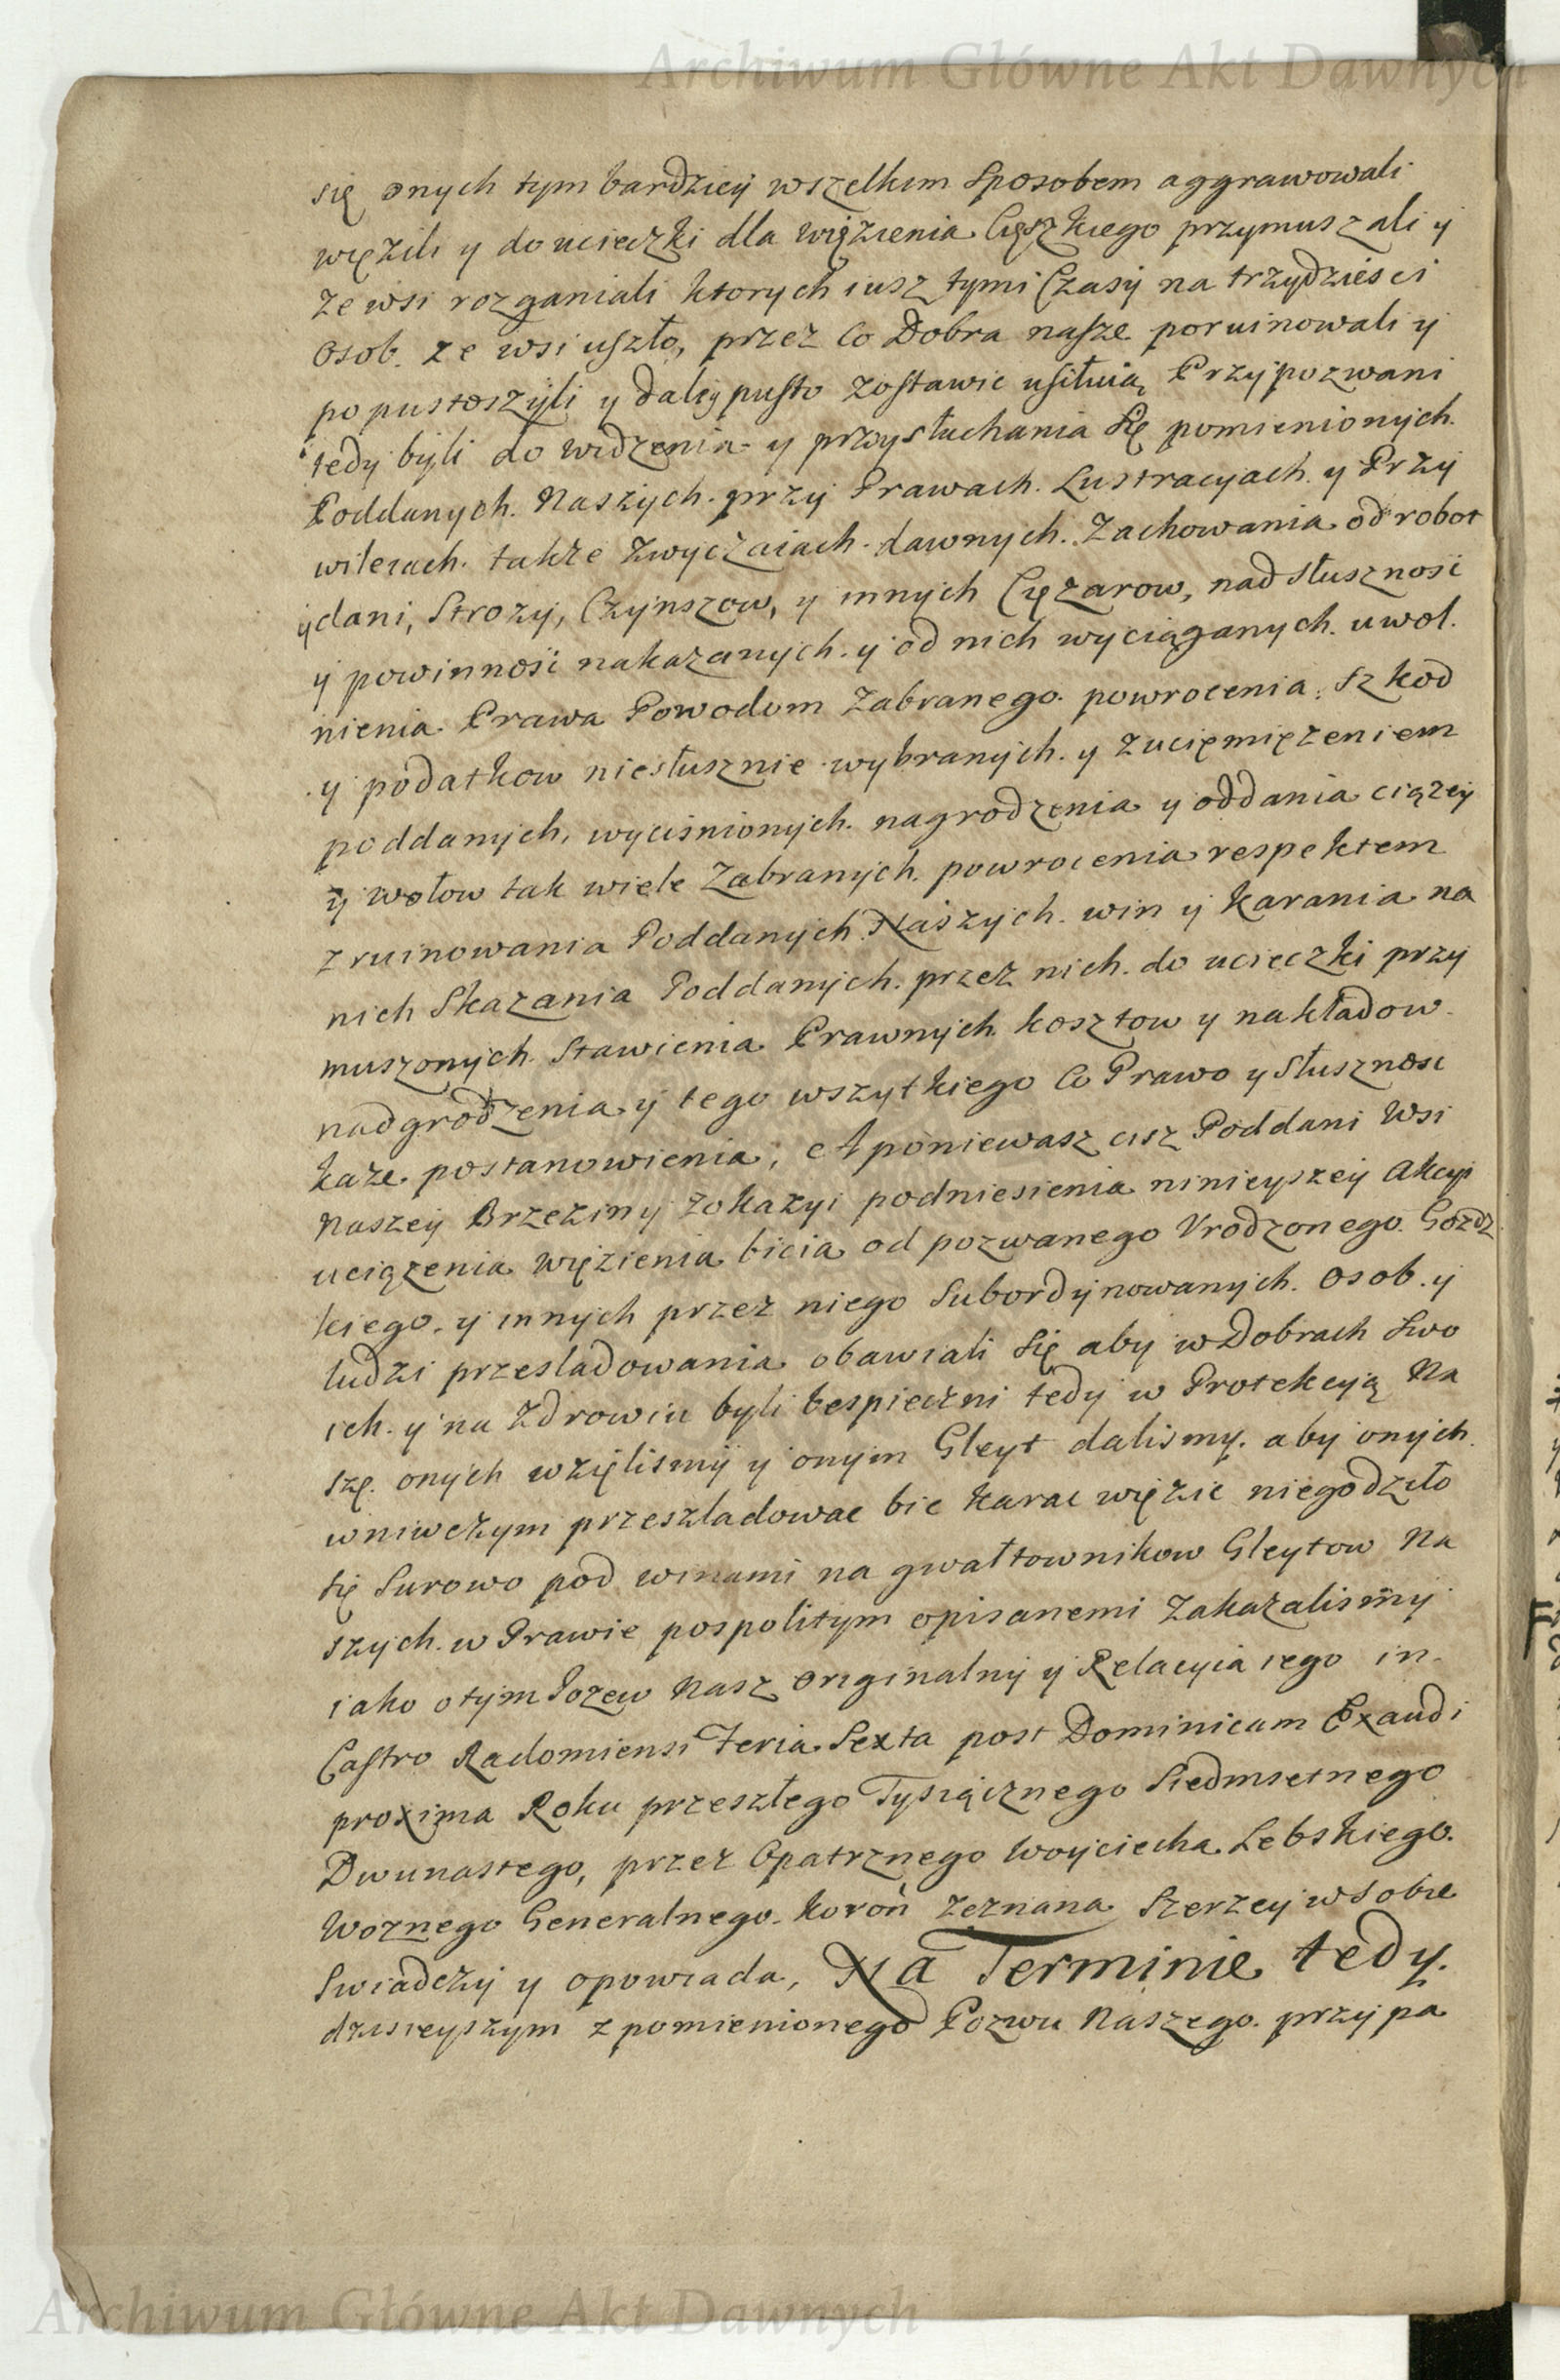 Archiwum Główne Akt Dawnych
się onych tym bardziey wszelkim sposobem aggrawowali
więzili y do ucieczki dla więzienia Cięszkiego przymuszali y
ze wsi rozganiali ktorych iusz tymi Czasy na trzydziesci
Osob. ze wsi uszło, przez co Dobra nasze poruinowali y
popustoszyli y daley pusto zostawic usiłuią Przypozwani
tedy byli do widzenia y przysłuchania się pomienionych.
Poddanych. Naszych. przy Prawach. Lustracyach. y Przy
wileiach. także zwyczaiach. dawnych. Zachowania od robot
y dani, Strozy, Czynszow, y innych Cięzarow, nad słusznosć
y powinnosć nakazanych. y od nich wyciąganych. uwol.
nienia Prawa Powodom zabranego. powrocenia. szkod
y podatkow niesłusznie wybranych. y z uciemięzeniem
poddanych, wycisnionych. nagrodzenia y oddania ciązey
y wołow tak wiele Zabranych. powrocenia respektem
zruinowania Poddanych Naszych. win y karania na
nich skazania Poddanych. przez nich. do ucieczki przy
muszonych. Stawienia Prawnych. kosztow y nakładow
nadgrodzenia y tego wszytkiego Co Prawo y Słusznosc
każe postanowienia, A poniewasz cisz Poddani Wsi
Naszey Brzeziny z okazyi podniesienia ninieyszey Akcyi
uciązenia więzienia bicia od pozwanego Urodzonego Gozdz
kiego. y innych przez niego subordynowanych. Osob. y
ludzi przesladowania obawiali się aby w Dobrach swo
ich. y na zdrowiu byli bespieczni tedy w Protekcyą Na
szę. onych wzięlismy y onym Gleyt dalismy. aby onych
wniwczym przeszladowac bic karac więzic niegodziło
się surowo pod winami na gwałtownikow Gleytow Na
szych. w Prawie pospolitym opisanemi zakazalismy
iako o tym Pozew Nasz Originalny y Relacyia iego in
Castro Radomiensi Feria Sexta post Dominicam Exaudi
proxima Roku przeszłego Tysiącznego Siedmsetnego
Dwunastego, przez Opatrznego Woyciecha Lebskiego.
Woznego Generalnego. Koron zeznana szerzey w sobie
Swiadczy y opowiada, Na Terminie tedy.
dzisieyszym z pomienionego Pozwu Naszego. przypa
Archiwum Główne Akt Dawnych